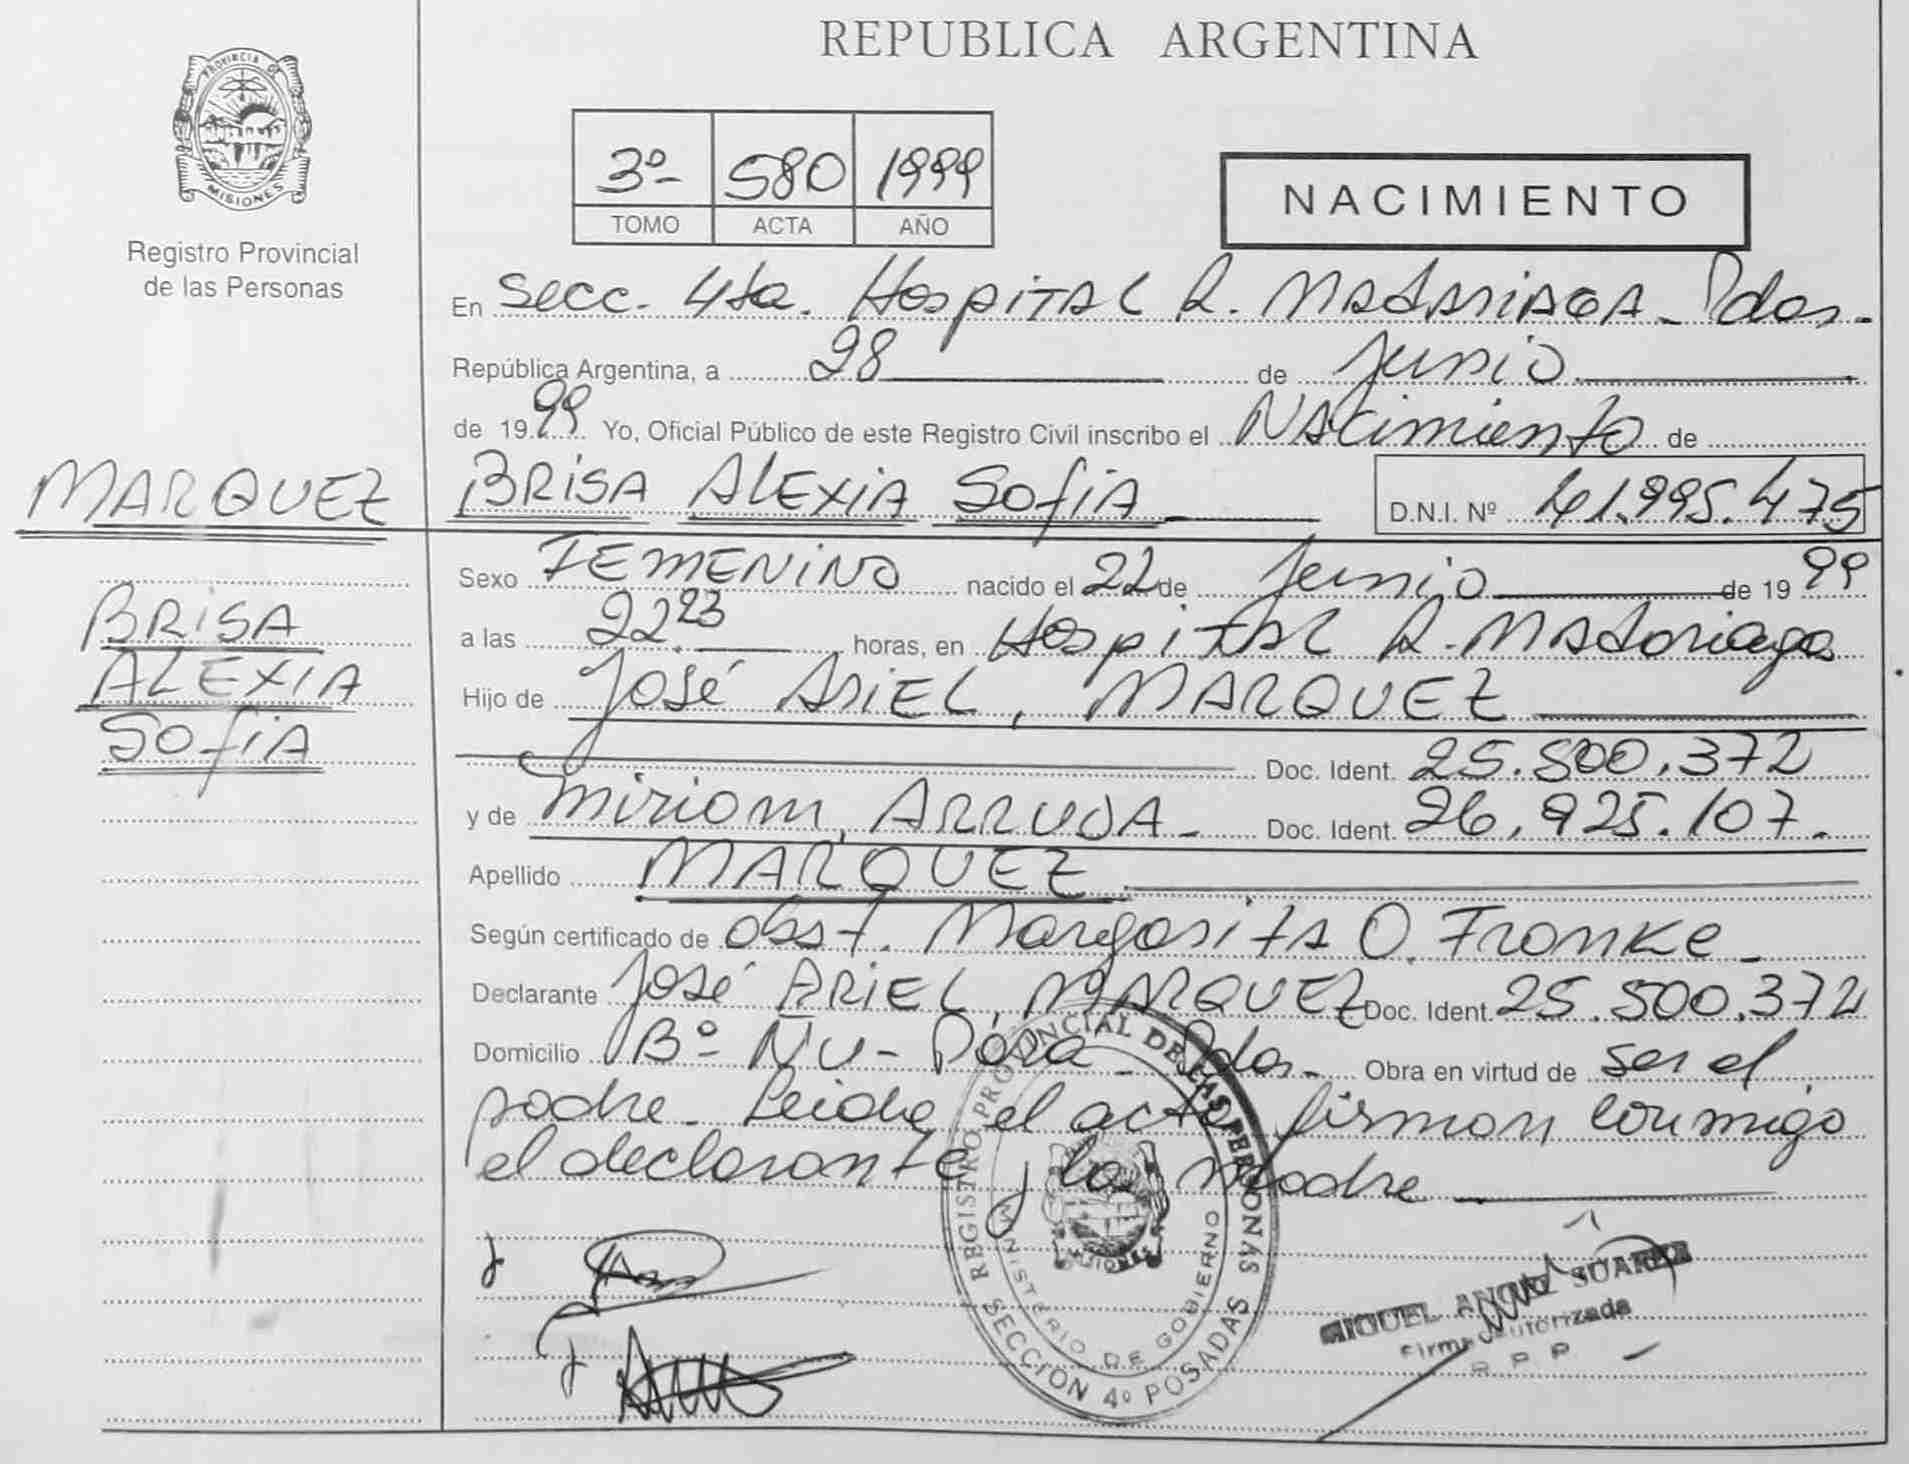 REPUBLICA ARGENTINA
PROVINCIA DE
MISIONES
Registro Provincial
de las Personas
3º 580 1999
TOMO ACTA AÑO
NACIMIENTO
En Secc. 4ta. Hospital R. Madariaga - Pdas.
República Argentina, a 28 de Junio
de 1999 Yo, Oficial Público de este Registro Civil inscribo el Nacimiento de
MARQUEZ
BRISA ALEXIA SOFIA D.N.I. Nº 41.995.475
BRISA
ALEXIA
SOFIA
Sexo FEMENINO nacido el 22 de Junio de 1999
a las 22.23 horas, en Hospital R. Madariaga
Hijo de José Ariel, MARQUEZ
Doc. Ident. 25.500.372
y de Miriam, ARRUDA - Doc. Ident. 26.925.107.
Apellido MARQUEZ
Según certificado de obst. Margarita O. Franke -
Declarante José Ariel, MARQUEZ Doc. Ident. 25.500.372
Domicilio Bº Ñu - Porá - Pdas. Obra en virtud de ser el
padre. Leida el acta firman conmigo
el declarante y la madre
REGISTRO PROVINCIAL DE LAS PERSONAS
MINISTERIO DE GOBIERNO
MISIONES
SECCIÓN 4º POSADAS
MIGUEL ANGEL SUAREZ
Firma Autorizada
R P P